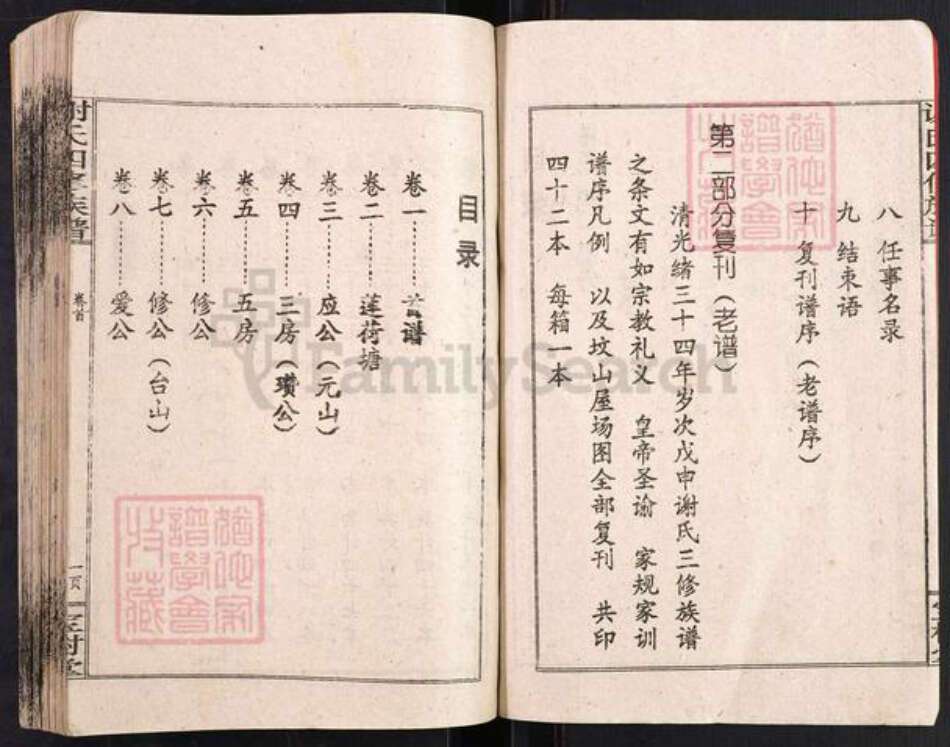 八 任事名录
九 结束语
十 复刊谱序（老谱序）
第二部分复刊（老谱）
清光绪三十四年岁次戊申谢氏三修族谱
之条文有如宗教礼义 皇帝圣谕 家规家训
谱序凡例 以及坟山屋场图全部复刊 共印
四十二本 每箱一本
目录
卷一………首谱
卷二………莲荷塘
卷三………应公（元山）
卷四………三房（瓒公）
卷五………五房
卷六………修公
卷七………修公（台山）
卷八………爱公
谢氏四修族谱
卷首
一页
宝树堂
FamilySearch